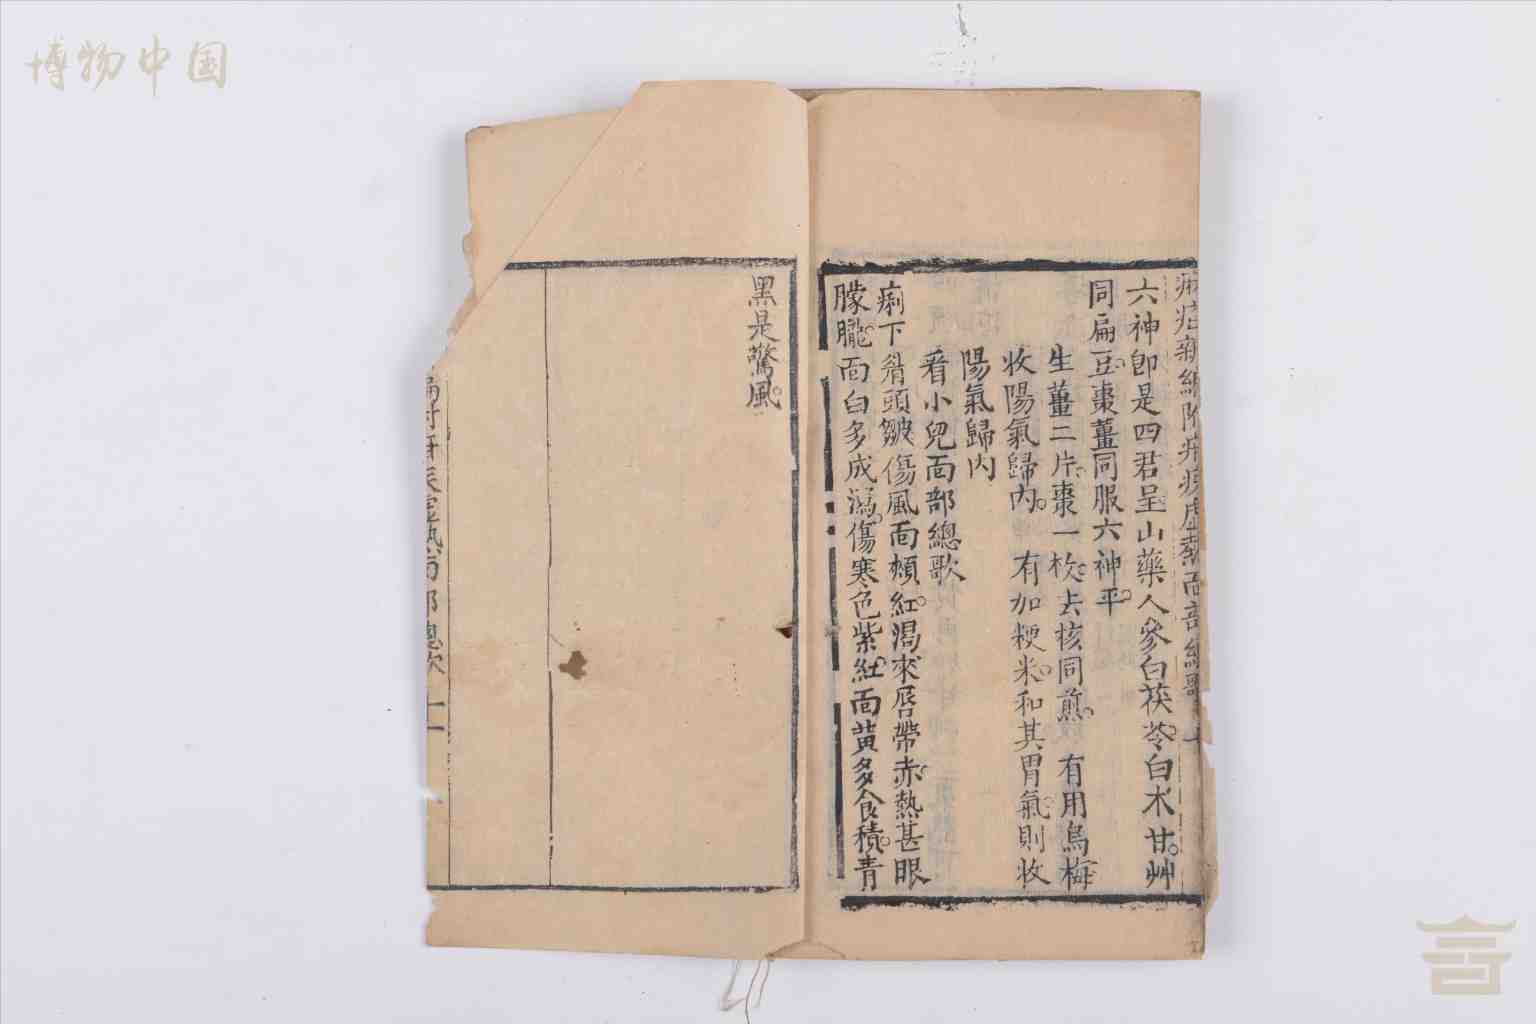 博物中国
六神即是四君呈山藥人參白茯苓白术甘艸
同扁豆棗薑同服六神平
生薑二片棗一枚去核同煎 有用烏梅
收陽氣歸內 有加粳米和其胃氣則收
陽氣歸內
看小兒面部總歌
痢下眉頭皺傷風面頰紅渴來唇帶赤熱甚眼
朦朧面白多成瀉傷寒色紫紅面黃多食積青
黑是驚風